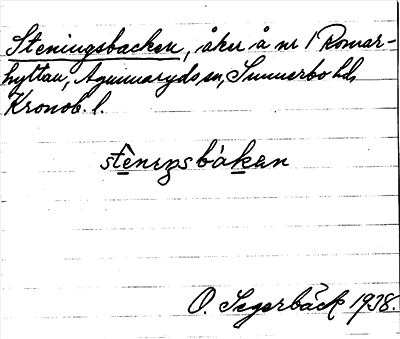 Steningsbacken, åker å nr 1 Romar-
hyttan, Agunnaryds sn, Sunnerbo hd,
Kronob. l.
stenıŋsbakan
O. Segerbäck 1938.